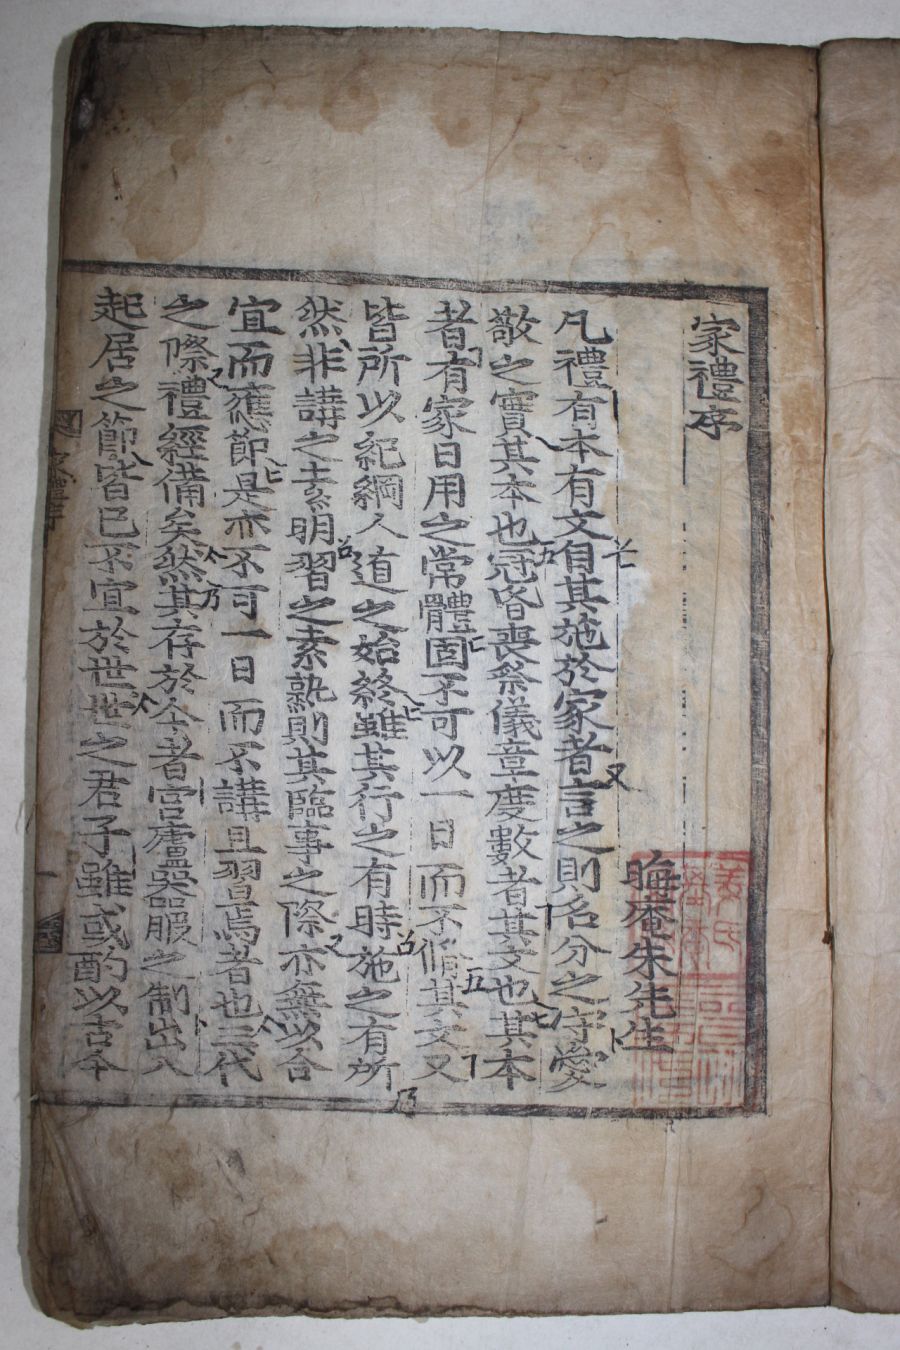 家禮序
晦庵朱先生
凡禮有本有文自其施於家者言之則名分之守愛
敬之實其本也冠昏喪祭儀章度數者其文也其本
者有家日用之常體固不可以一日而不脩其文又
皆所以紀綱人道之始終雖其行之有時施之有所
然非講之素明習之素熟則其臨事之際亦無以合
宜而應節是亦不可一日而不講且習焉者也三代
之際禮經備矣然其存於今者宮廬器服之制出入
起居之節皆已不宜於世世之君子雖或酌以古今